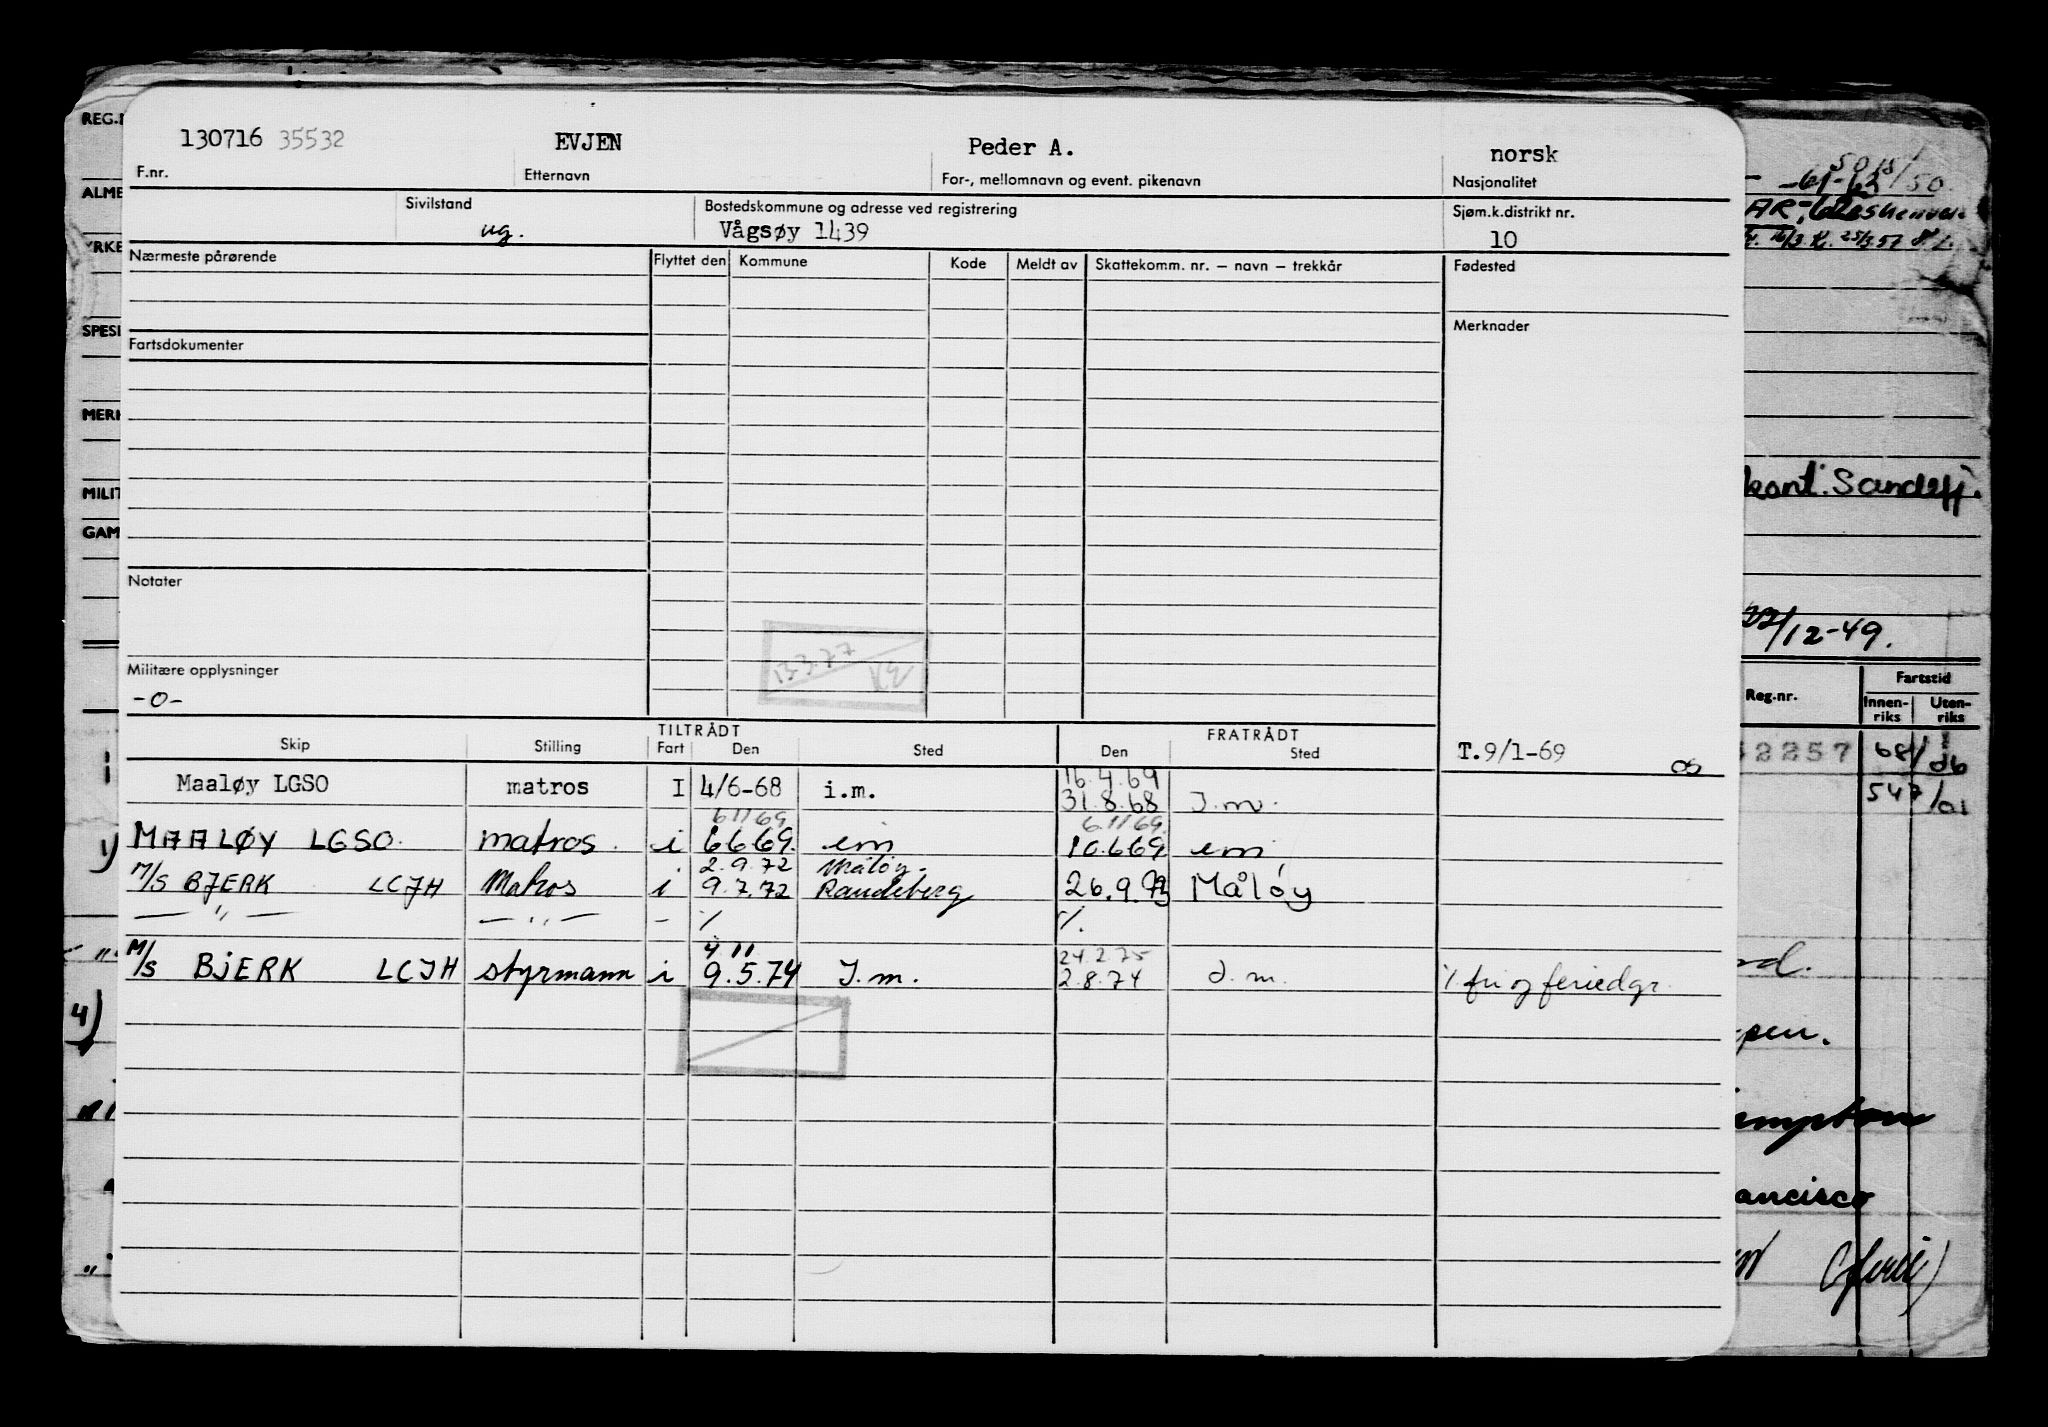 130716 35532 EVJEN Peder A. norsk
F.nr. Etternavn For-, mellomnavn og event. pikenavn Nasjonalitet
Sivilstand Bostedskommune og adresse ved registrering Sjøm.k.distrikt nr.
ug. Vågsøy 1439 10
Nærmeste pårørende Flyttet den Kommune Kode Meldt av Skattekomm. nr. — navn — trekkår Fødested
Merknader
Fartsdokumenter
Notater
13.3.77
Militære opplysninger
-0-
TILTRÅDT FRATRÅDT
Skip Stilling Fart Den Sted Den Sted T.9/1-69
16.4.69
Maaløy LGSO matros I 4/6-68 i.m. 31.8.68 I.m.
6 11 69 6.11 69.
MAALØY LGSO. matros. i 6669. im 10.669 im
2.9.72 Måløy.
M/S BJERK LCJH Matros i 9.7.72 Raudeberg 26.9.73 Måløy
— " — — " — - % %.
4.11 24.2.75
M/S BJERK LCJH styrmann i 9.5.74 I.m. 2.8.74 I.m. % fri og feriedgr.
REG.
ALME
YRKE
SPESI
MERK
MILIT
GAM
1)
"
4)
"
-61-63
kont. Sandefj.
22/12-49.
Fartstid
Reg.nr. Innen-riks Uten-riks
2257 68/ 06
547/01
pen.
ampton
ancisco